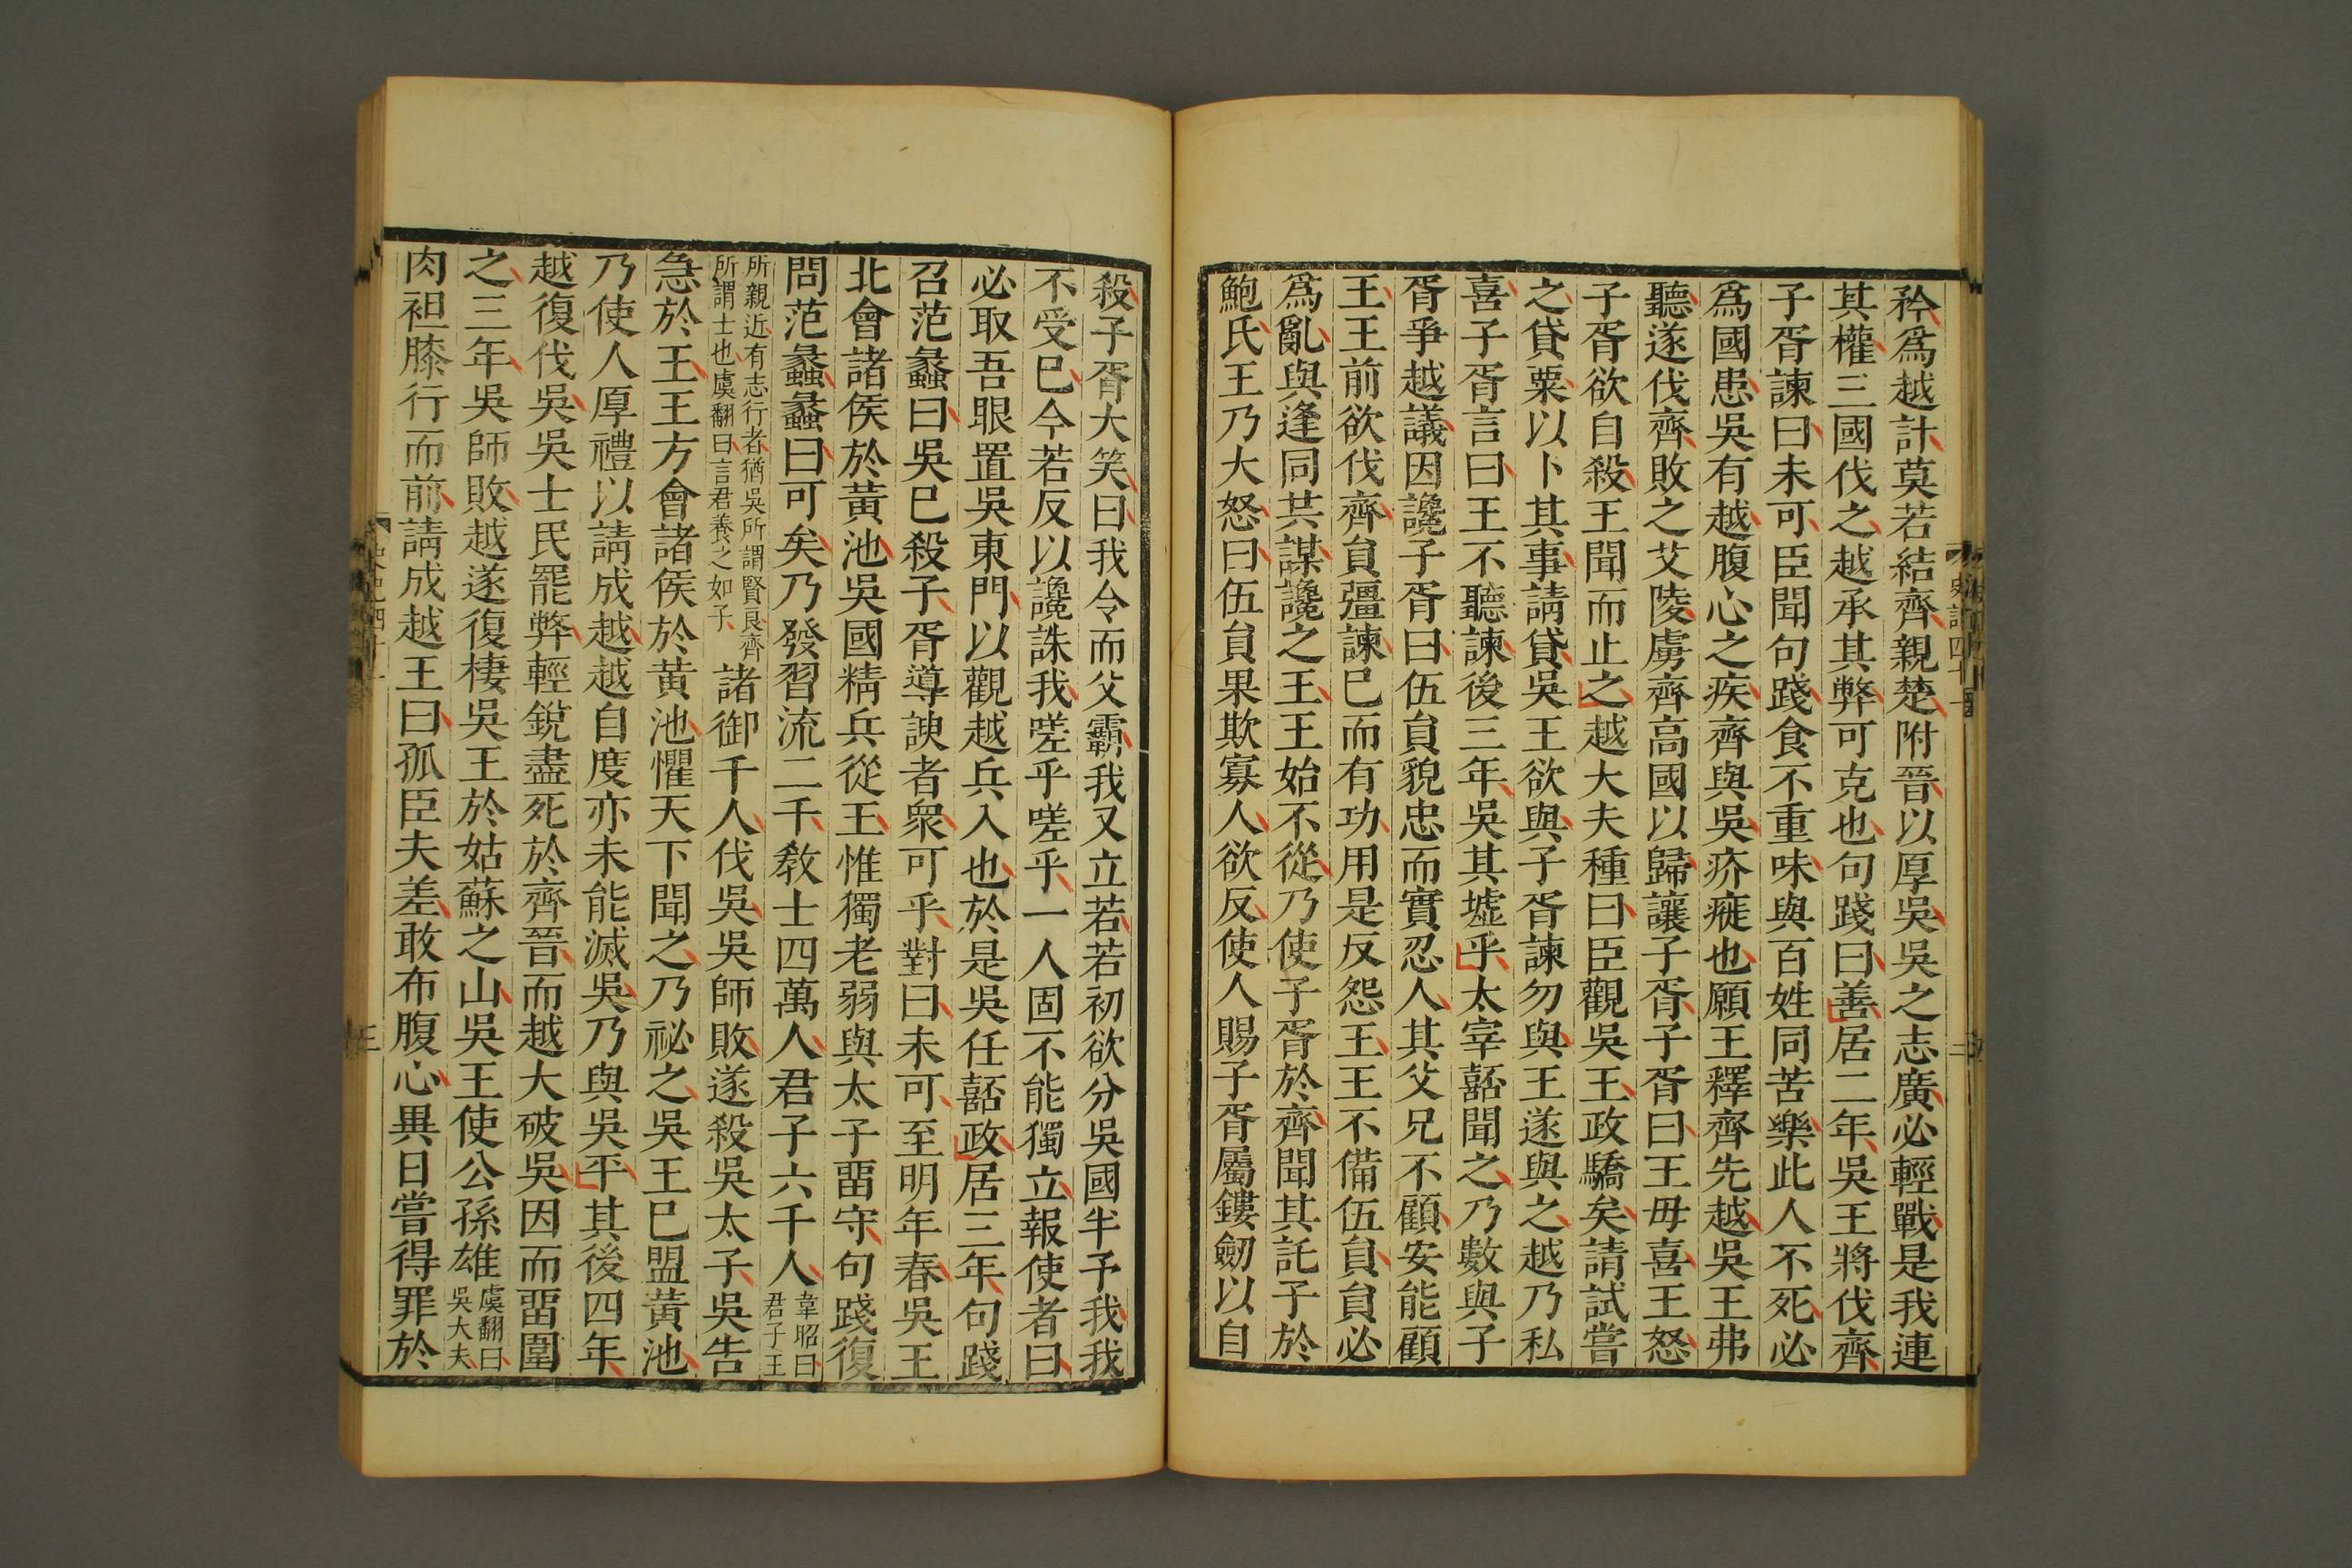 矜爲越計莫若結齊親楚附晉以厚吳吳之志廣必輕戰是我連
其權三國伐之越承其弊可克也句踐曰善居二年吳王將伐齊
子胥諫曰未可臣聞句踐食不重味與百姓同苦樂此人不死必
爲國患吳有越腹心之疾齊與吳疥癬也願王釋齊先越吳王弗
聽遂伐齊敗之艾陵虜齊高國以歸讓子胥子胥曰王毋喜王怒
子胥欲自殺王聞而止之越大夫種曰臣觀吳王政驕矣請試嘗
之貸粟以卜其事請貸吳王欲與子胥諫勿與王遂與之越乃私
喜子胥言曰王不聽諫後三年吳其墟乎太宰嚭聞之乃數與子
胥爭越議因讒子胥曰伍員貌忠而實忍人其父兄不顧安能顧
王王前欲伐齊員彊諫巳而有功用是反怨王王不備伍員員必
爲亂與逢同共謀讒之王王始不從乃使子胥於齊聞其託子於
鮑氏王乃大怒曰伍員果欺寡人欲反使人賜子胥屬鏤劒以自
殺子胥大笑曰我令而父霸我又立若若初欲分吳國半予我我
不受巳今若反以讒誅我嗟乎嗟乎一人固不能獨立報使者曰
必取吾眼置吳東門以觀越兵入也於是吳任嚭政居三年句踐
召范蠡曰吳巳殺子胥導諛者衆可乎對曰未可至明年春吳王
北會諸侯於黃池吳國精兵從王惟獨老弱與太子畱守句踐復
問范蠡蠡曰可矣乃發習流二千敎士四萬人君子六千人韋昭曰君子王
所親近有志行者猶吳所謂賢良齊所謂士也虞翻曰言君養之如子諸御千人伐吳吳師敗遂殺吳太子吳告
急於王王方會諸侯於黄池懼天下聞之乃祕之吳王巳盟黃池
乃使人厚禮以請成越越自度亦未能滅吳乃與吳平其後四年
越復伐吳吳士民罷弊輕銳盡死於齊晉而越大破吳因而畱圍
之三年吳師敗越遂復棲吳王於姑蘇之山吳王使公孫雄虞翻曰吳大夫
肉袒膝行而前請成越王曰孤臣夫差敢布腹心異日嘗得罪於